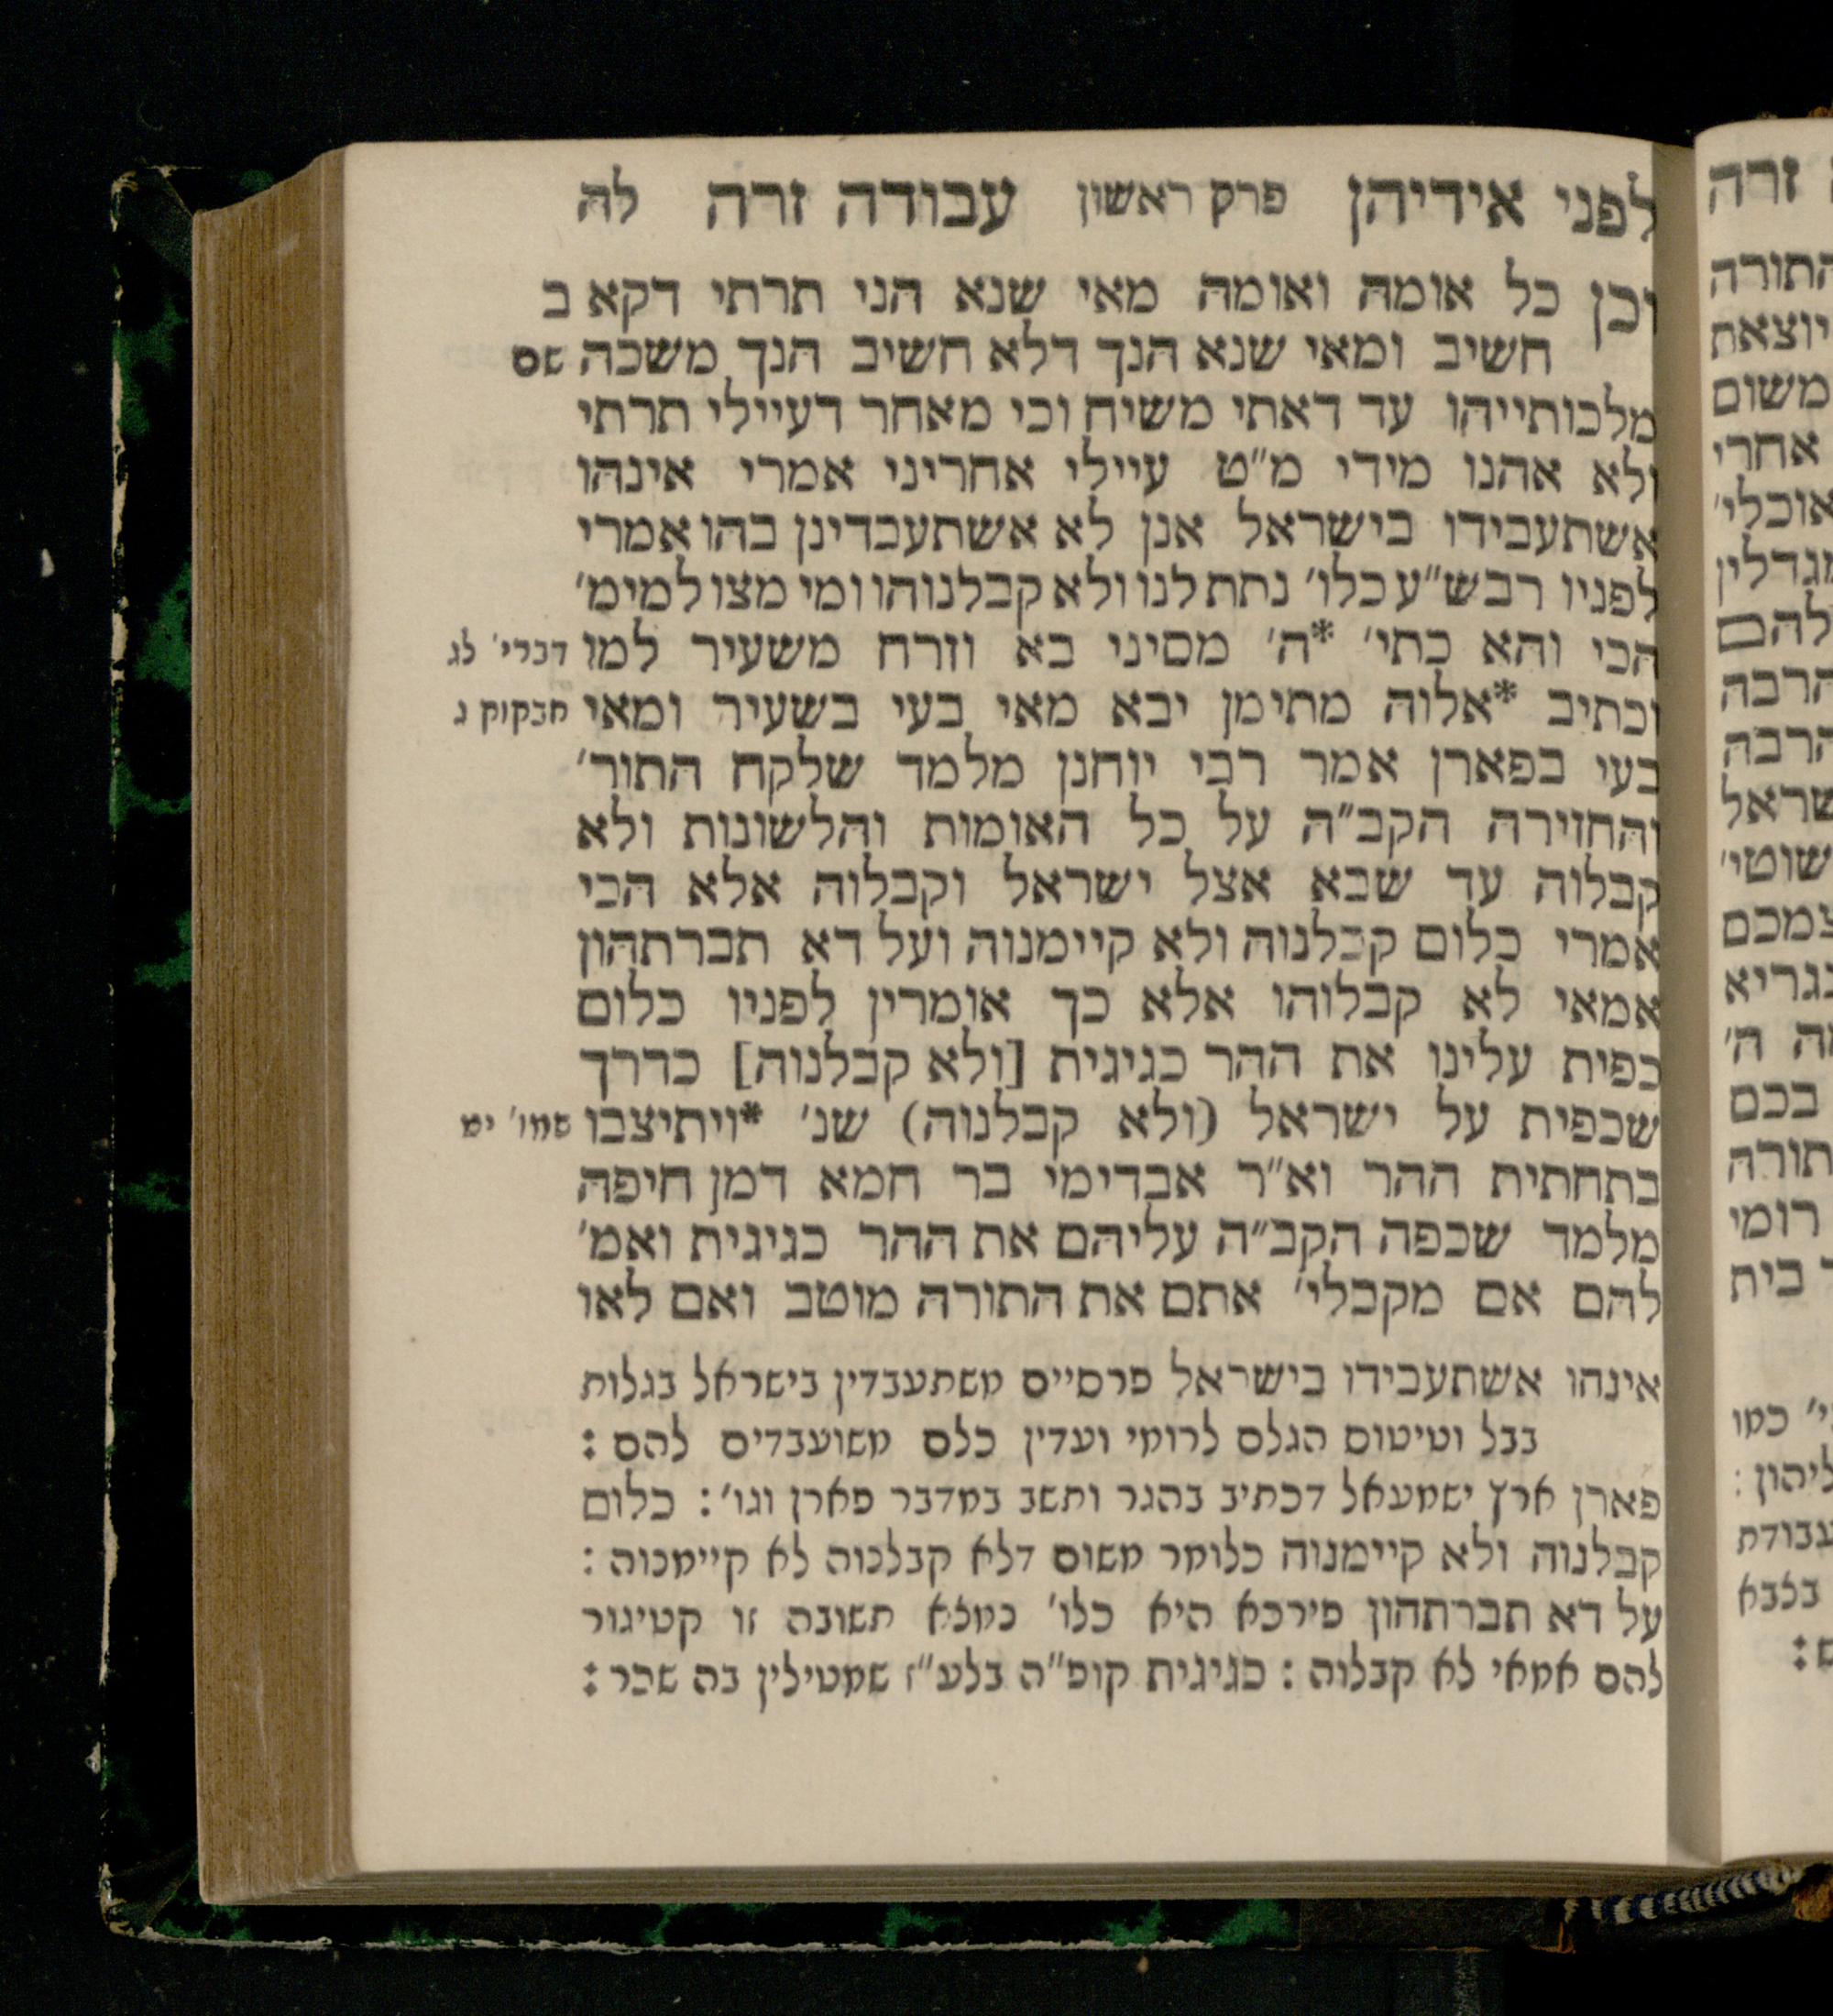 לפני אידיהן פרק ראשון עבודה זרה לה
וכן כל אומה ואומה מאי שנא הני תרתי דקא ב
חשיב ומאי שנא הנך דלא חשיב הנך משכה שם
מלכותייהו עד דאתי משיח וכי מאחר דעיילי תרתי
ולא אהנו מידי מ"ט עיילי אחריני אמרי אינהו
אשתעבידו בישראל אנן לא אשתעבדינן בהו אמרי
לפניו רבש"ע כלו' נתת לנו ולא קבלנוהו ומי מצו למימ'
הכי והא כתי' *ה' מסיני בא וזרח משעיר למו דברי' לג
וכתיב *אלוה מתימן יבא מאי בעי בשעיר ומאי חבקוק ג
בעי בפארן אמר רבי יוחנן מלמד שלקח התור'
והחזירה הקב"ה על כל האומות והלשונות ולא
קבלוה עד שבא אצל ישראל וקבלוה אלא הכי
אמרי כלום קבלנוה ולא קיימנוה ועל דא תברתהון
אמאי לא קבלוהו אלא כך אומרין לפניו כלום
כפית עלינו את ההר כגיגית [ולא קבלנוה] כדרך
שכפית על ישראל (ולא קבלנוה) שנ' *ויתיצבו שמו' יט
בתחתית ההר וא"ר אבדימי בר חמא דמן חיפה
מלמד שכפה הקב"ה עליהם את ההר כגיגית ואמ'
להם אם מקבלי' אתם את התורה מוטב ואם לאו
אינהו אשתעבידו בישראל פרסיים משתעבדין בישראל בגלות
בבל וטיטוס הגלם לרומי ועדין כלם משועבדים להם :
פארן ארץ ישמעאל דכתיב בהגר ותשב במדבר פארן וגו' : כלום
קבלנוה ולא קיימנוה כלומר משום דלא קבלנוה לא קיימנוה :
על דא תברתהון פירכא היא כלו' נמצא תשובה זו קטיגור
להם אמאי לא קבלוה : כגיגית קופ"ה בלע"ז שמטילין בה שכר :
זרה
התורה
יוצאת
משום
אחרי
אוכלי'
להם
הרבה
הרבה
בכם
רומי
בית